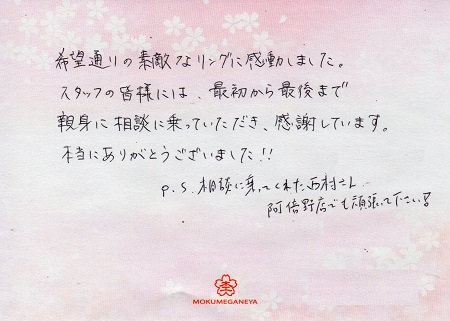 希望通りの素敵なリングに感動しました。
スタッフの皆様には、最初から最後まで
親身に相談に乗っていただき、感謝しています。
本当にありがとうございました!!
P.S. 相談に乗ってくれた西村さん
阿倍野店でも頑張って下さい!
MOKUMEGANEYA